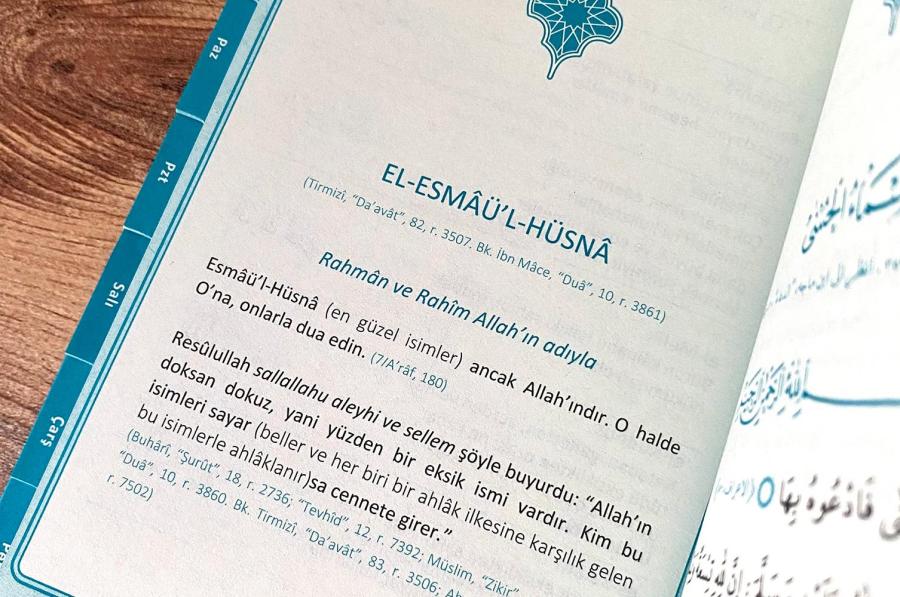 Paz
Pzt
Salı
Çarş
EL-ESMÂÜ’L-HÜSNÂ
(Tirmizî, “Da’avât”, 82, r. 3507. Bk. İbn Mâce, “Duâ”, 10, r. 3861)
Rahmân ve Rahîm Allah’ın adıyla
Esmâü’l-Hüsnâ (en güzel isimler) ancak Allah’ındır. O halde
O’na, onlarla dua edin. (7/A’râf, 180)
Resûlullah sallallahu aleyhi ve sellem şöyle buyurdu: “Allah’ın
doksan dokuz, yani yüzden bir eksik ismi vardır. Kim bu
isimleri sayar (beller ve her biri bir ahlâk ilkesine karşılık gelen
bu isimlerle ahlâklanır)sa cennete girer.”
(Buhârî, “Şurût”, 18, r. 2736; “Tevhîd”, 12, r. 7392; Müslim, “Zikir”
“Duâ”, 10, r. 3860. Bk. Tirmizî, “Da’avât”, 83, r. 3506;
r. 7502)
فَادْعُوهُ بِهَا